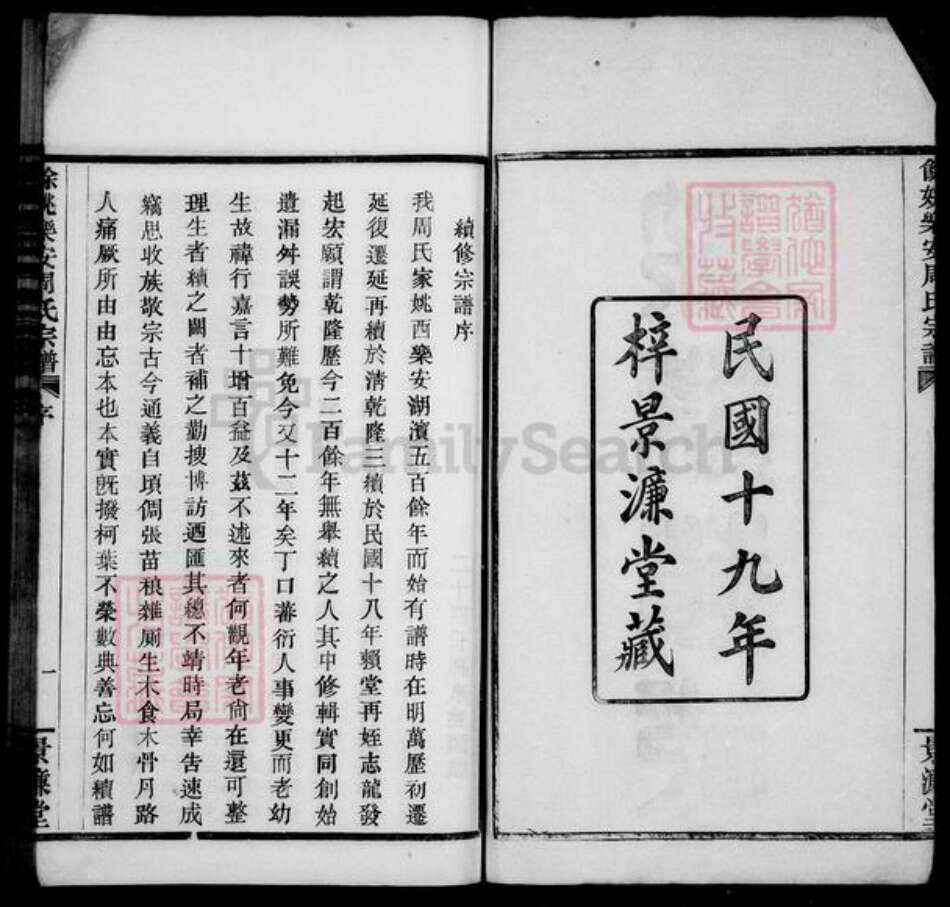 餘姚樂安周氏宗譜
景濂堂
民國十九年
梓景濂堂藏
續修宗譜序
我周氏家姚西樂安湖濱五百餘年而始有譜時在明萬歷初遷
延復遷延再續於淸乾隆三續於民國十八年賴堂再姪志龍發
起宏願謂乾隆歷今二百餘年無舉續之人其中修輯實同創始
遺漏舛誤勢所難免今又十二年矣丁口蕃衍人事變更而老幼
生故禕行嘉言十增百益及茲不述來者何觀年老尙在還可整
理生者續之闕者補之勤搜博訪迺匯其總不靖時局幸告速成
竊思收族敬宗古今通義自頃倜張苗稂雜厠生木食木骨月路
人痛厥所由由忘本也本實旣撥柯葉不榮數典善忘何如續譜
餘姚樂安周氏宗譜 序
一
景濂堂
FamilySearch